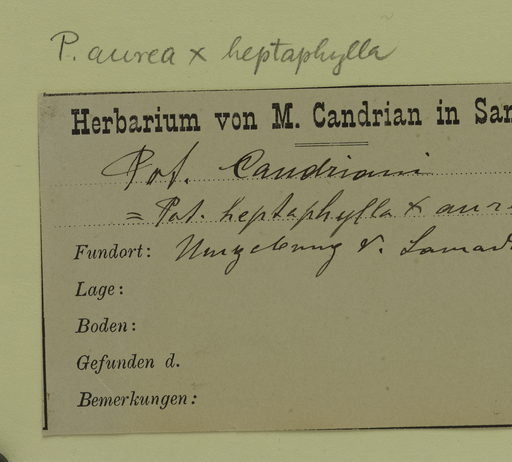 P. aurea x heptaphylla
Herbarium von M. Candrian in Sam
Pot. Candriani
= Pot. heptaphylla x aure
Fundort: Umgebung v. Samad
Lage:
Boden:
Gefunden d.
Bemerkungen: